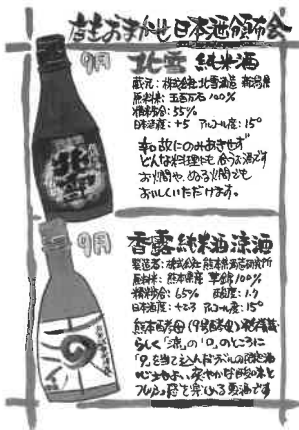 店主おまかせ日本酒頒布会
9月
北雪 純米酒
蔵元：株式会社北雪酒造 新潟県
原料米：五百万石100%
精米歩合：55%
日本酒度：+5 アルコール度：15°
和故にのみあきせず
どんな料理にも合うお酒です
お燗や、ぬる燗でも
おいしくいただけます。
北雪
9月
香露 純米酒 涼酒
製造者：株式会社熊本県酒造研究所
原料米：熊本県産 華錦100%
精米歩合：65% 酸度：1.7
日本酒度：+2.3 アルコール度：15°
熊本酵母(9号酵母)発祥蔵
らしく「涼」の「口」のところに
「9」を当て込んだラベルの限定酒
心地よい爽やかな酸味と
を楽しめる夏酒です